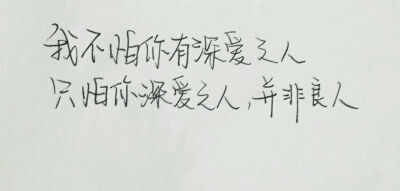 我不怕你有深爱之人
只怕你深爱之人,并非良人